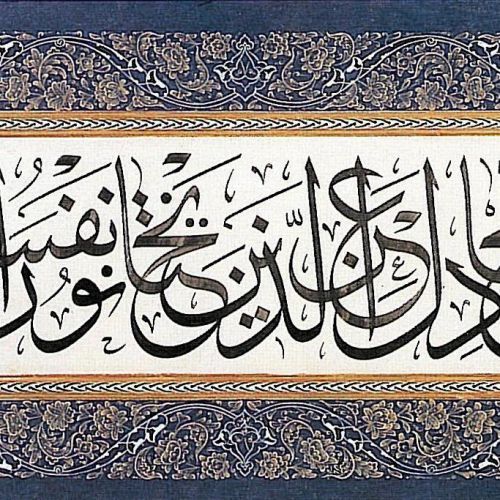 جادل عن الذين يختانون انفس